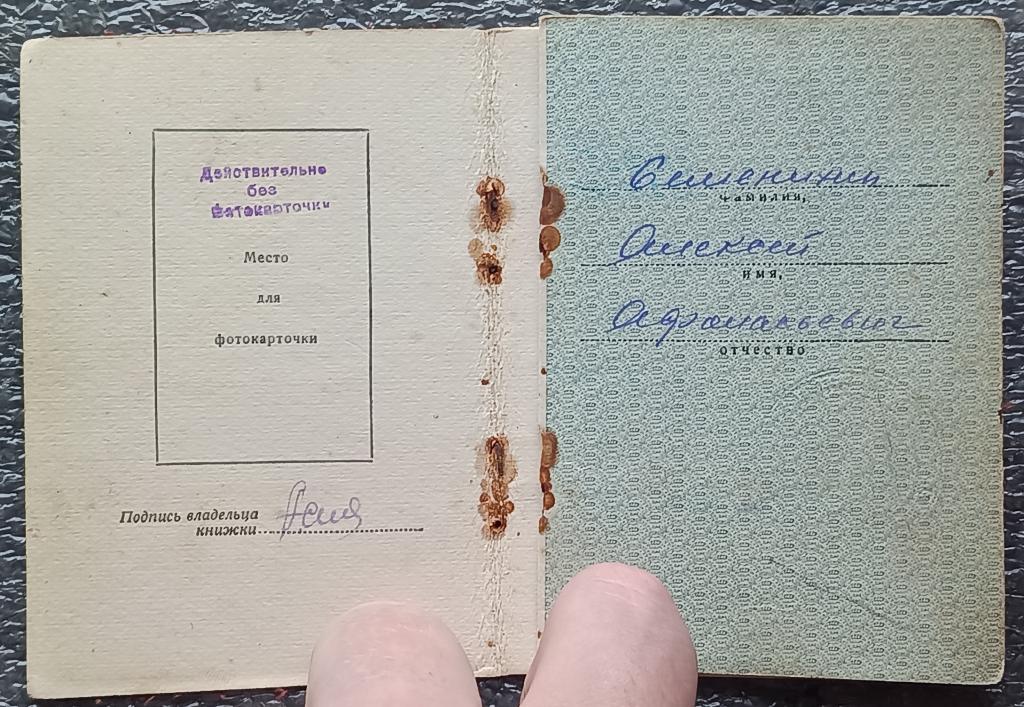 Действительно
без
фотокарточки
Место
для
фотокарточки
Подпись владельца
книжки
Семенихин
фамилия,
Алексей
имя,
Афанасьевич
отчество